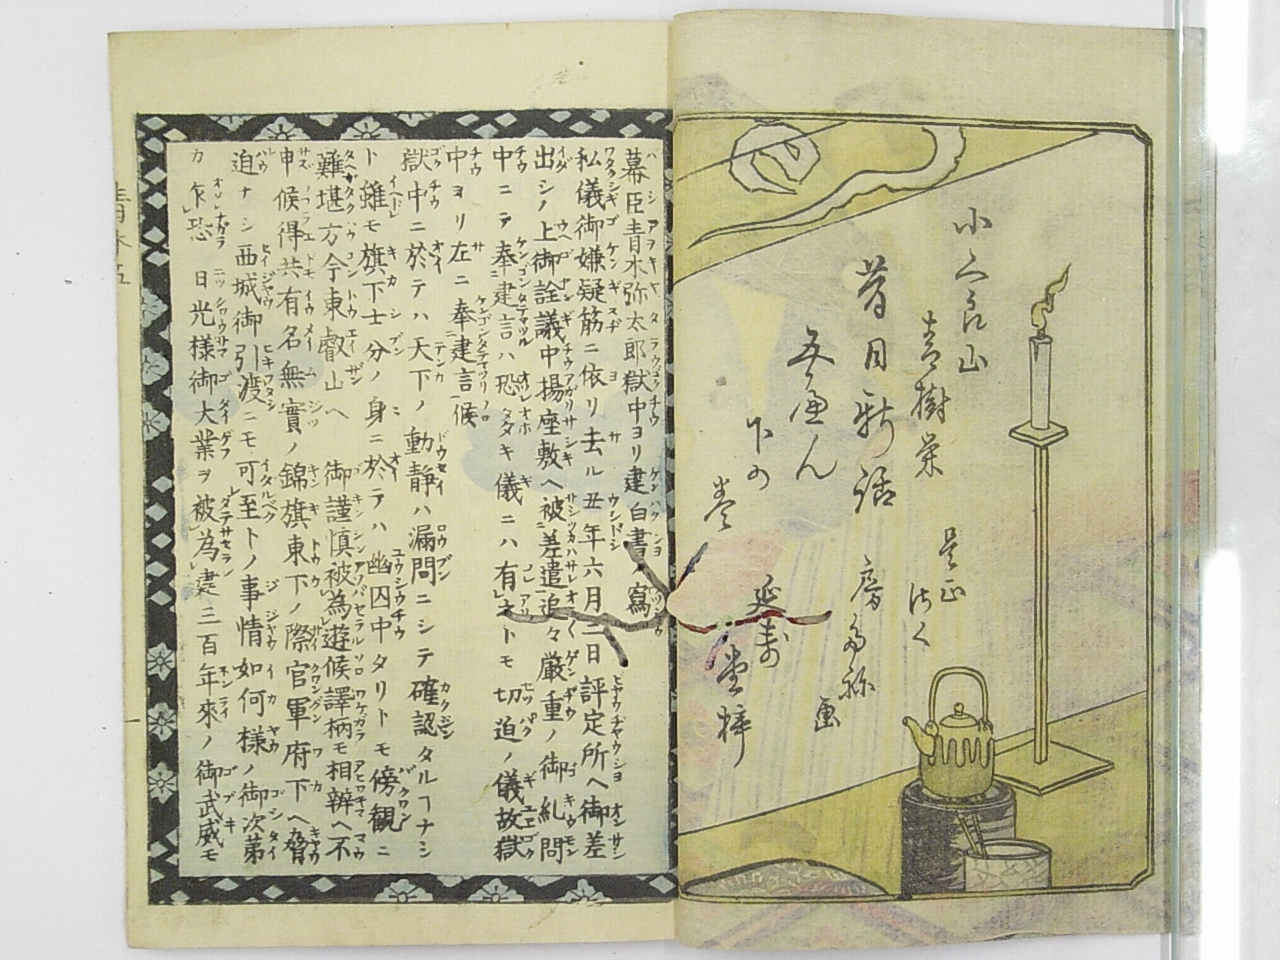 青樹栄
昔日新話
五へん
下の
巻
房種
画
延寿
堂梓
幕臣青木弥太郎獄中ヨリ建白書ノ寫
私儀御嫌疑筋ニ依リ去ル丑年六月二日評定所ヘ御差
出シノ上御詮議中揚座敷ヘ被差遣追々厳重ノ御糺問
中ニテ奉建言ハ恐タキ儀ニハ有之トモ切迫ノ儀故獄
中ヨリ左ニ奉建言候
獄中ニ於テハ天下ノ動静ハ漏問ニシテ確認タルヿナシ
ト雖モ旗下士分ノ身ニ於テハ幽囚中タリトモ傍観ニ
難堪方今東叡山ヘ御謹慎被為遊候譯柄モ相辨ヘ不
申候得共有名無實ノ錦旗東下ノ際官軍府下ヘ脅
迫ナシ西城御引渡ニモ可至トノ事情如何様ノ御次第
カ乍恐日光様御大業ヲ被為建三百年來ノ御武威モ